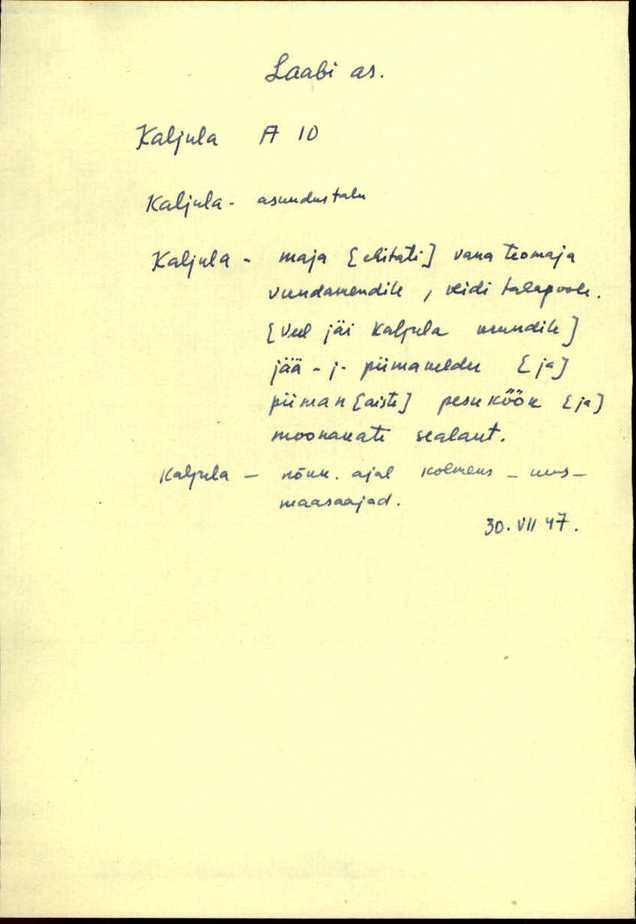 Laabi as.
Kaljula A 10
Kaljula - asundustalu
Kaljula - maja [ehitati] vana teomaja
vundamendile, veidi tahapoole.
[Veel jäi Kaljula krundile]
jää - j. piimakelder [ja]
piiman[aiste] pesuköök [ja]
moonakate sealaut.
Kaljula - nõuk. ajal kolmeks - uus-
maasaajad.
30. VII 47.